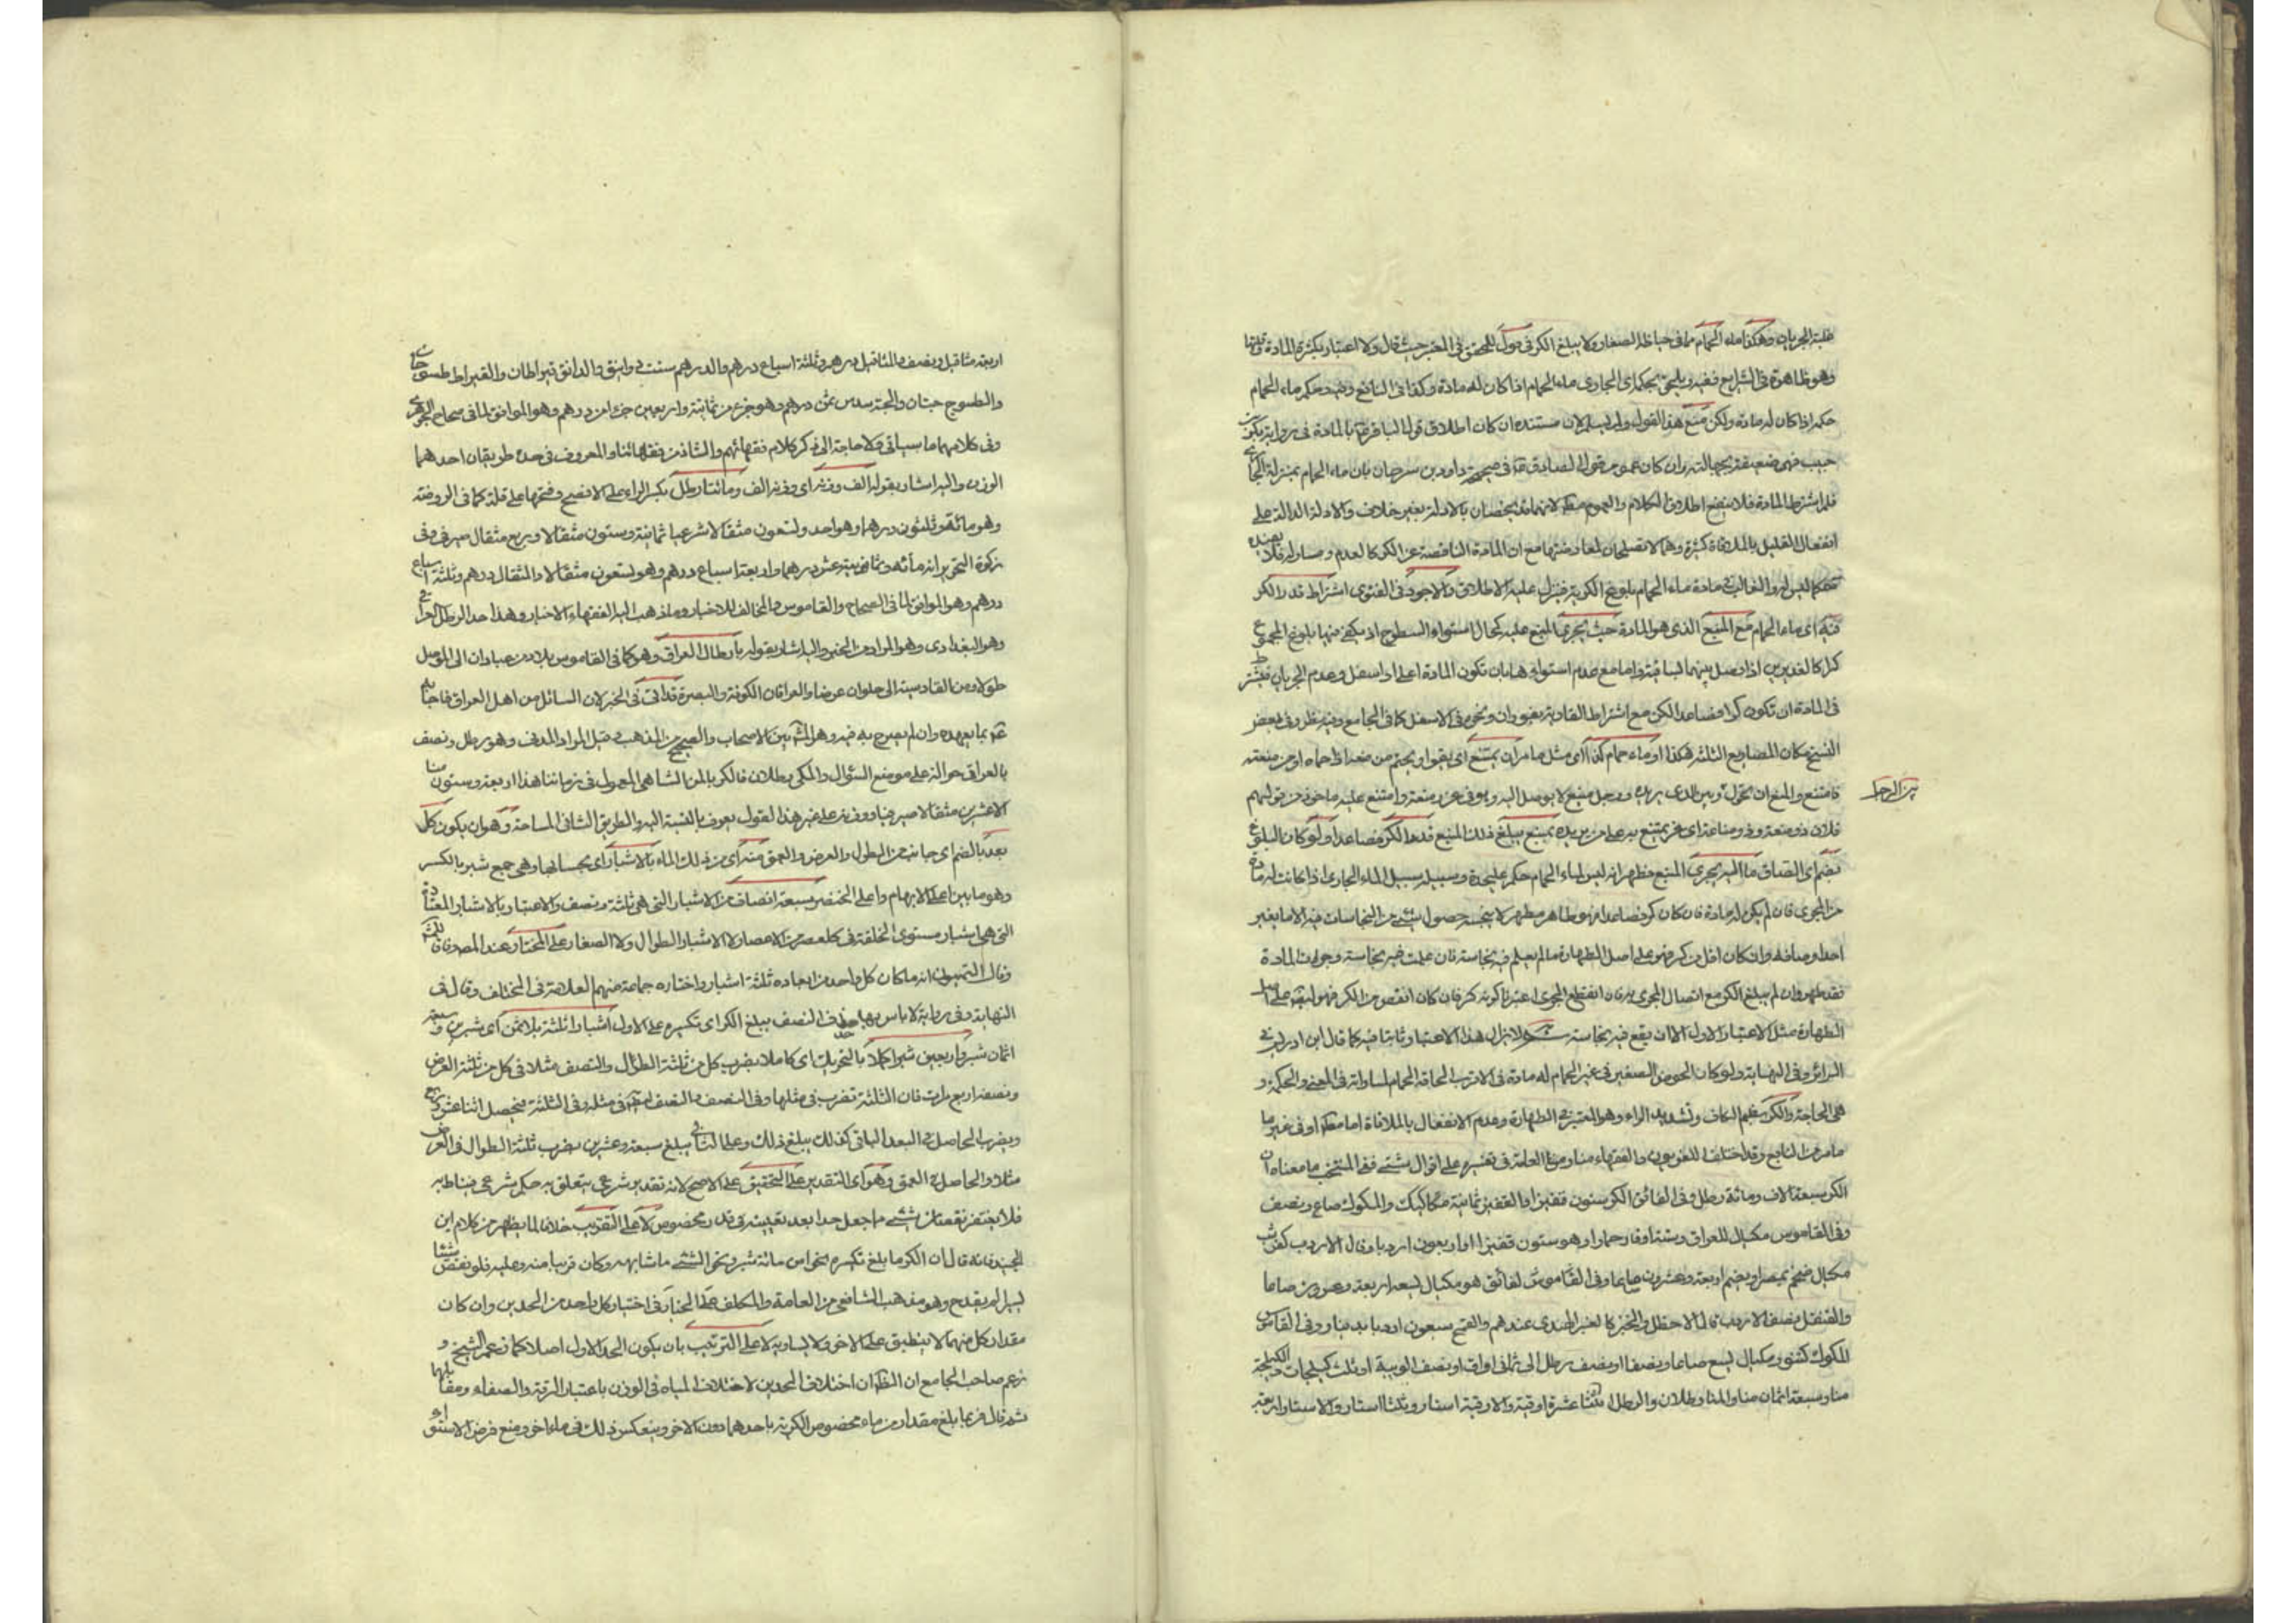 غلبة الجريان وهكذا ماء الحمام ما في حياضه الصغار ولا يبلغ الكر في قول للمحقق في المعتبر حيث قال ولا اعتبار بكثرة المادة وقلتها
وهو ظاهره في الشرايع ففيه ويلحق بحكمه اي الجاري ماء الحمام اذا كان له مادة وكذا في النافع وفيه وحكم ماء الحمام
حكمه اذا كان له مادة ولكن منع هذا القول ولم يسلم لان مستنده ان كان اطلاق قول الباقر بالمادة في رواية بكر بن
حبيب فهي ضعيفة بجهالته وان كان عموم قول الصادق في صحيحة داود بن سرحان بان ماء الحمام بمنزلة الجاري
فلم اشترط المادة فلا ينفع اطلاق الكلام والعموم لانهما يخصان بالادلة بغير خلاف والادلة الدالة على
انفعال القليل بالملاقاة كثيرة وهما لا يصلحان لمعارضتها مع ان المادة الناقصة عن الكر كالعدم ومساوله فلا يفيده
حكما ليس له والغالب في مادة ماء الحمام بلوغ الكرية فينزل عليه الاطلاق والاجود في الفتوى اشتراط قدر الكر
فيه اي ماء الحمام مع المنبع الذي هو المادة حيث يجري المنبع عليه كحال استواء السطوح اذ يكفي فيها بلوغ المجموع
كرا كالغديرين اذا وصل بينهما لساقية واما مع عدم استوائها بان تكون المادة اعلى او اسفل وعدم الجريان فيشترط
في المادة ان تكون كرا فصاعدا لكن مع اشتراط القاهرية بفوران ونحوه في الاسفل كما في الجامع وفيه نظر وفي بعض
النسخ مكان المصاريع الثلثة هكذا او ماء حمام كذا اي مثل ما مر ان يمتنع اي يقوى او يحتم من منعه اذا حماه او من منعته
فامتنع والمنع ان تحول بين الرجل وبين الذي يريده ورجل منيع لا يوصل اليه وهو في عز ومنعة وامتنع عليه ماخوذ من قولهم
فلان ذو منعة وذو مناعة اي عز يمتنع به على من يريده بمنبع يبلغ ذلك المنبع قدر الكر فصاعدا ولو كان البلوغ
بضم اي التصاق ما اليه يجري المنبع فظهر انه ليس لماء الحمام حكم على حدة وسبيله سبيل الماء الجاري اذا كانت له مادة
من المجرى فان لم يكن له مادة فان كان كر فصاعدا فهو طاهر مطهر لا ينجسه حصول شئ من النجاسات فيه الا ما يغير
احد اوصافه وان كان اقل من كر فهو على اصل الطهارة ما لم يعلم فيه نجاسة فان علمت فيه نجاسة وجرت المادة
فقد طهر وان لم يبلغ الكر مع اتصال المجرى به فان انقطع المجرى اعتبر كونه كر فان كان انقص من الكر فهو على اصل
الطهارة مثل الاعتبار الاول الا ان يقع فيه نجاسة ولا نزال هذا الاعتبار ثابتا فيه كما قال ابن ادريس في
السرائر وفي النهاية ولو كان الحوض الصغير في غير الحمام له مادة فالاقرب الحاقه بالحمام لمساواته في المعنى والحكمة و
هي الحاجة والكر بضم الكاف وتشديد الراء وهو المعتبر في الطهارة وعدم الانفعال بالملاقاة اما او في غير ما
ما مر من النابع وقد اختلف اللغويون والفقهاء منا ومن العامة في تفسيره على اقوال شتى ففي المنتخب ما معناه ان
الكر سبعة الاف ومائة رطل وفي الفائق الكر ستون قفيزا والقفيز ثمانية مكاكيك والمكوك صاع ونصف
وفي القاموس مكيال للعراق وستة اوقار حمار او هو ستون قفيزا او اربعون اردبا وقال الاردب كقرشب
مكيال ضخم بمصر ويضم اربعة وعشرون صاعا وفي الفائق هو مكيال لسعة اربعة وعشرين صاعا
والقنقل نصف الاردب قال الاخطل والخبز كالعنبر الهندي عندهم والقمح سبعون اردبا بدينار وفي القاموس
المكوك كتنور مكيال يسع صاعا ونصفا او نصف رطل الى ثماني اواق او نصف الويبة او ثلث كيلجات والكيلجة
منا وسبعة اثمان منا والمنا رطلان والرطل اثنتا عشرة اوقية والاوقية استار وثلثا استار والاستار اربعة
اربعة مثاقيل ونصف والمثاقيل درهم وثلثة اسباع درهم والدرهم ستة دوانيق والدانق قيراطان والقيراط طسوجان
والطسوج حبتان والحبة سدس ثمن درهم وهو جزء من ثمانية واربعين جزءا من درهم وهو الموافق لما في صحاح الجوهري
وفي كلامهما ما سياتي ولا حاجة الى ذكر كلام فقهائهم والشاذ من فقهائنا والمعروف في حده طريقان احدهما
الوزن واليه اشار بقوله الف وزنه اي وزنه الف ومائتا رطل بكسر الراء على الافصح وفتحها على قلة كما في الروضة
وهو مائة وثلثون درهما وهو احد وتسعون مثقالا شرعيا ثمانية وستون مثقالا وربع مثقال صيرفي وفي
زكوة التحرير انه مائة وثمانية عشر درهما واربعة اسباع درهم وهو تسعون مثقالا والمثقال درهم وثلثة اسباع
درهم وهو الموافق لما في الصحاح والقاموس والمخالف للاخبار وما ذهب اليه الفقهاء الاخيار وهذا حد الرطل العراقي
وهو البغدادي وهو المراد من الخبر واليه اشار بقوله بأرطال العراق وهو كما في القاموس بلاد من عبادان الى الموصل
طولا ومن القادسية الى حلوان عرضا والعراقان الكوفة والبصرة قد اتى في الخبر لان السائل من اهل العراق فاجابهم
بما يعهده وان لم يصرح به فيه وهو بين الاصحاب والصحيح من المذهب وقيل المراد المدني وهو رطل ونصف
بالعراقي حوالة على موضع السؤال والمكي رطلان فالكر بالمن الشاهي المعمول في زماننا هذا اربعة وستون منا
الا عشرين مثقالا صيرفيا ووزنه على غير هذا القول يعرف بالنسبة اليه والطريق الثاني المساحة وهو ان يكون كل
بعد بالضم اي جانب من الطول والعرض والعمق منه اي من ذلك الماء بالاشبار اي بحسابها وهي جمع شبر بالكسر
وهو ما بين اعلى الابهام واعلى الخنصر سبعة انصاف من الاشبار التي هي ثلثة ونصف والاعتبار بالاشبار المعتادة
التي هي اشبار مستوى الخلقة في كل عصر من الاعصار لا الاشبار الطوال ولا الصغار على المختار عند المصنف
وقال القميون انه ما كان كل واحد من ابعاده ثلثة اشبار واختاره جماعة منهم العلامة في المختلف وقال في
النهاية وفي رواية لا باس بها حذف النصف يبلغ الكر اي تكسيره على الاول اشبارا ثلثة بلا ثمن اي شبرين وسبعة
اثمان شبر واربعين شبرا كملا بالتحريك اي كاملا بضرب كل من ثلثة الطوال والنصف مثلا في كل من ثلثة العرض
ونصفه اربع مرات فان الثلثة تضرب في مثلها وفي النصف والنصف في مثله وفي الثلثة فيحصل اثنا عشر وربع
ويضرب الحاصل في البعد الباقي كذلك يبلغ ذلك وعلى الثاني يبلغ سبعة وعشرين بضرب ثلثة الطول في العرض
مثلا والحاصل في العمق وهو اي التقدير على التحقيق على الاصح لانه تقدير شرعي يتعلق به حكم شرعي يناط به
فلا يغتفر نقصان شئ ما جعل حدا بعد تعيينه في قدر مخصوص لا على التقريب خلافا لما يظهر من كلام ابن
الجنيد فانه قال ان الكر ما بلغ تكسيره نحوا من مائة شبر ونحو الشئ ما شابهه وكان قريبا منه وعليه فلو نقص شيئا
يسيرا لم يقدح وهو مذهب الشافعي من العامة والمكلف على الخيار في اختيار كل واحد من الحدين وان كان
مقدار كل منهما لا ينطبق على الاخر ولا يساويه لا على الترتيب بان يكون الحد الاول اصلا كما زعم الشيخ و
زعم صاحب الجامع ان الظ ان اختلاف الحدين لاختلاف المياه في الوزن باعتبار الرقة والصفاء ومقابلهما
ثم قال فربما بلغ مقدار من ماء مخصوص الكرية باحدهما دون الاخر وينعكس ذلك في ماء اخر ومنع فرض الاستواء